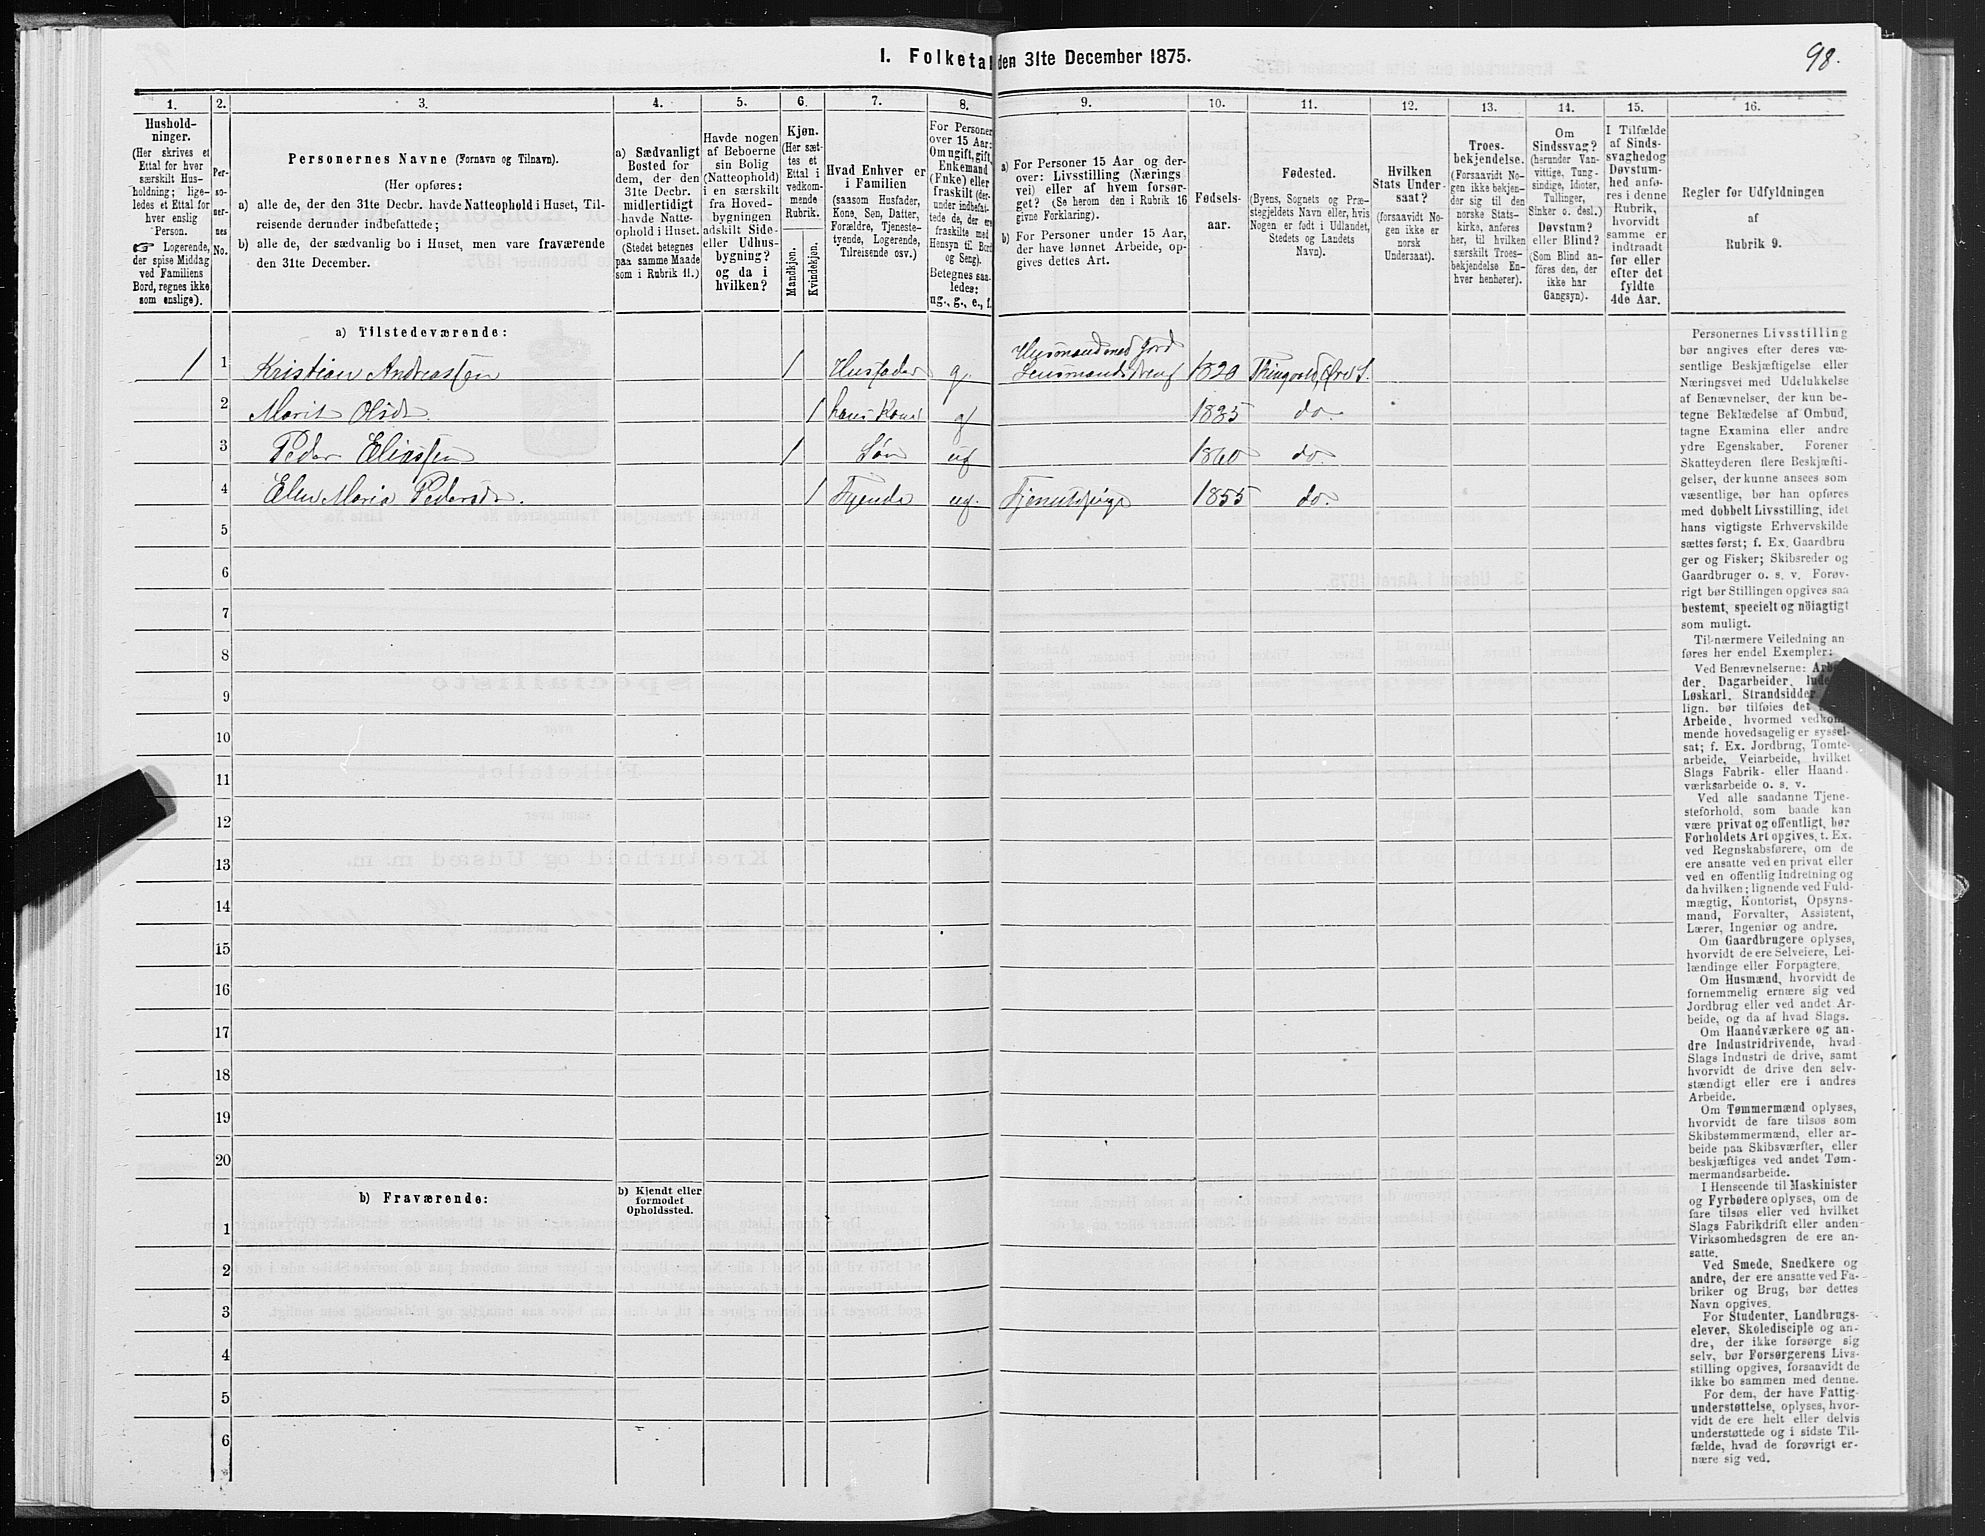 98.
I. Folketal den 31te December 1875.
1. 2. 3. 4. 5. 6. 7. 8. 9. 10. 11. 12. 13. 14. 15. 16.
Hushold-
ninger.
(Her skrives et
Ettal for hver
særskilt Hus-
holdning; lige-
ledes et Ettal for
hver enslig
Person.
☞ Logerende,
der spise Middag
ved Familiens
Bord, regnes ikke
som enslige).
Per-
so-
ner-
nes
No.
Personernes Navne (Fornavn og Tilnavn).
(Her opføres:
a) alle de, der den 31te Decbr. havde Natteophold i Huset, Til-
reisende derunder indbefattede;
b) alle de, der sædvanlig bo i Huset, men vare fraværende
den 31te December.
a) Sædvanligt
Bosted for
dem, der den
31te Decbr.
midlertidigt
havde Natte-
ophold i Huset.
(Stedet betegnes
paa samme Maade
som i Rubrik 11.)
Havde nogen
af Beboerne
sin Bolig
(Natteophold)
i en særskilt
fra Hoved-
bygningen
adskilt Side-
eller Udhus-
bygning?
og da i
hvilken?
Kjøn.
(Her sæt-
tes et
Ettal i
vedkom-
mende
Rubrik.
Mandkjøn.
Kvindekjøn.
Hvad Enhver er
i Familien
(saasom Husfader,
Kone, Søn, Datter,
Forældre, Tjeneste-
tyende, Logerende,
Tilreisende osv.)
For Personer
over 15 Aar:
Om ugift, gift,
Enkemand
(Enke) eller
fraskilt (der-
under indbefat-
tede de, der ere
fraskilte med
Hensyn til Bord
og Seng).
Betegnes saa-
ledes:
ug., g., e., f.
a) For Personer 15 Aar og der-
over: Livsstilling (Nærings
vei) eller af hvem forsør-
get? (Se herom den i Rubrik 16
givne Forklaring).
b) For Personer under 15 Aar,
der have lønnet Arbeide, op-
gives dettes Art.
Fødsels-
aar.
Fødested.
(Byens, Sognets og Præ-
stegjeldets Navn eller, hvis
Nogen er født i Udlandet,
Stedets og Landets
Navn).
Hvilken
Stats Under-
saat?
(forsaavidt No-
gen ikke er
norsk
Undersaat).
Troes-
bekjendelse.
(Forsaavidt No-
gen ikke bekjen-
der sig til den
norske Stats-
kirke, anføres
her, til hvilken
særskilt Troes-
bekjendelse En-
hver henhører).
Om
Sindssvag?
(herunder Van-
vittige, Tung-
sindige, Idioter,
Tullinger,
Sinker o. desl.)
Døvstum?
eller Blind?
(Som Blind an-
føres den, der
ikke har
Gangsyn).
I Tilfælde
af Sinds-
svaghedog
Døvstum-
hed anfø-
res i denne
Rubrik,
hvorvidt
samme er
indtraadt
før eller
efter det
fyldte
4de Aar.
Regler før Udfyldningen
af
Rubrik 9.
a) Tilstedeværende:
1 1 Kristian Andreassen 1 Husfader g. Husmand med Jord 1820
2 Marit Olsdt. 1 hans Kone g 1835 do.
3 Peder Eliassen 1 Søn ug 1860 do.
4 Elen Maria Pedersdt. 1 Tyende ug. Tjenestpige 1855 do.
5
6
7
8
9
10
11
12
13
14
15
16
17
18
19
20
b) Fraværende:
b) Kjendt eller
formodet
Opholdssted.
1
2
3
4
5
6
Personernes Livsstilling
bør angives efter deres væ-
sentlige Beskjæftigelse eller
Næringsvei med Udelukkelse
af Benævnelser, der kun be-
tegne Beklædelse af Ombud,
tagne Examina eller andre
ydre Egenskaber. Forener
Skatteyderen flere Beskjæfti-
gelser, der kunne ansees som
væsentlige, bør han opføres
med dobbelt Livsstilling, idet
hans vigtigste Erhvervskilde
sættes først; f. Ex. Gaardbru
ger og Fisker; Skibsreder og
Gaardbruger o. s. v. Forøv-
rigt bør Stillingen opgives saa
bestemt, specielt og nöiagtigt
som muligt.
Til nærmere Veiledning an
føres her endel Exempler:
Ved Benævnelserne:
der, Dagarbeider,
Løskarl, Strandsidder
lign. bør tilføies det
Arbeide, hvormed vedkom-
mende hovedsagelig er syssel-
sat; f. Ex. Jordbrug, Tomte-
arbeide, Veiarbeide, hvilket
Slags Fabrik- eller Haand-
værksarbeide o. s. v.
Ved alle saadanne Tjene-
steforhold, som baade kan
være privat og offentligt, bør
Forholdets Art opgives, t. Ex.
ved Regnskabsførere, om de
ere ansatte ved en privat eller
ved en offentlig Indretning og
da hvilken; lignende ved Fuld-
mægtig, Kontorist, Opsyns-
mand, Forvalter, Assistent,
Lærer, Ingeniør og andre.
Om Gaardbrugere oplyses,
hvorvidt de ere Selveiere, Lei-
lændinge eller Forpagtere.
Om Husmænd, hvorvidt de
fornemmelig ernære sig ved
Jordbrug eller ved andet Ar-
beide, og da af hvad Slags.
Om Haandværkere og an-
dre Industridrivende, hvad
Slags Industri de drive, samt
hvorvidt de drive den selv-
stændigt eller ere i andres
Arbeide.
Om Tømmermænd oplyses,
hvorvidt de fare tilsøs som
Skibstømmermænd, eller ar-
beide paa Skibsværfter, eller
beskjæftiges ved andet Tøm-
mermandsarbeide.
I Henseende til Maskinister
og Fyrbødere oplyses, om de
fare tilsøs eller ved hvilket
Slags Fabrikdrift eller anden
Virksomhedsgren de ere an-
satte.
Ved Smede, Snedkere og
andre, der ere ansatte ved Fa-
briker og Brug, bør dettes
Navn opgives.
For Studenter, Landbrugs-
elever, Skoledisciple og an-
dre, der ikke forsørge sig
selv, bør Forsørgerens Livs-
stilling opgives, forsaavidt de
ikke bo sammen med denne.
For dem, der have Fattig-
understøttelse, oplyses, hvor-
vidt de ere helt eller delvis
understøttede og i sidste Til-
fælde, hvad de forøvrigt er-
nære sig ved.